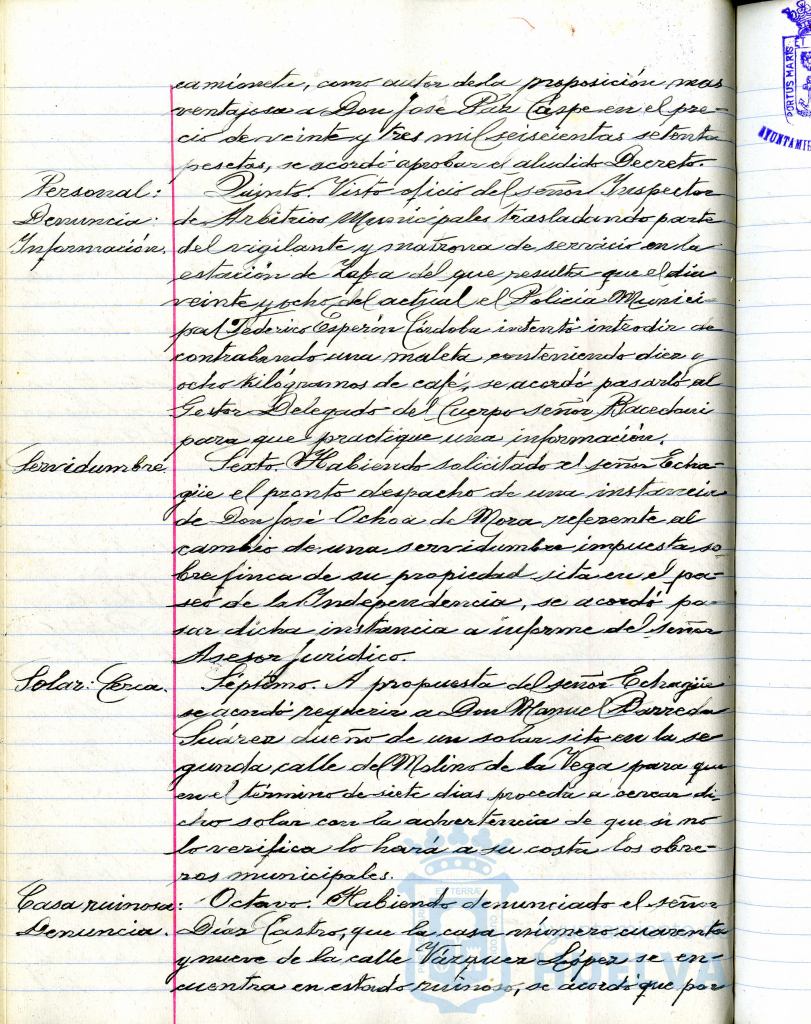 camioneta, como autor de la proposición mas
ventajosa a Don José Paz Caspe en el pre-
cio de veinte y tres mil seiscientas setenta
pesetas, se acordó aprobar el aludido Decreto.
Personal:
Denuncia:
Información.
Quinto. Visto oficio del señor Inspector
de Arbitrios Municipales trasladando parte
del vigilante y matrona de servicio en la
estación de Zafra del que resulta que el dia
veinte y ocho del actual el Policía Munici-
pal Federico Esperón Córdoba intentó introdir de
contrabando una maleta conteniendo diez y
ocho kilógramos de café, se acordó pasarlo al
Gestor Delegado del Cuerpo señor
para que practique una información.
Servidumbre.
Sexto. Habiendo solicitado el señor Echa-
güe el pronto despacho de una instancia
de Don José Ochoa de Mora referente al
cambio de una servidumbre impuesta so-
bre finca de su propiedad sita en el pa-
seo de la Independencia, se acordó pa-
sar dicha instancia a informe del señor
Asesor Jurídico.
Solar: Cerca.
Séptimo. A propuesta del señor Echagüe
se acordó requerir a Don Manuel Barreda
Suárez dueño de un solar sito en la se-
gunda calle del Molino de la Vega para que
en el término de siete dias proceda a cercar di-
cho solar con la advertencia de que si no
lo verifica lo hará a su costa los obre-
ros municipales.
Casa ruinosa:
Denuncia.
Octavo. Habiendo denunciado el señor
Díaz Castro, que la casa número cuarenta
y nueve de la calle Vázquez López se en-
cuentra en estado ruinoso, se acordó que por
PORTUS MARIS
AYUNTAMIE
HUELVA